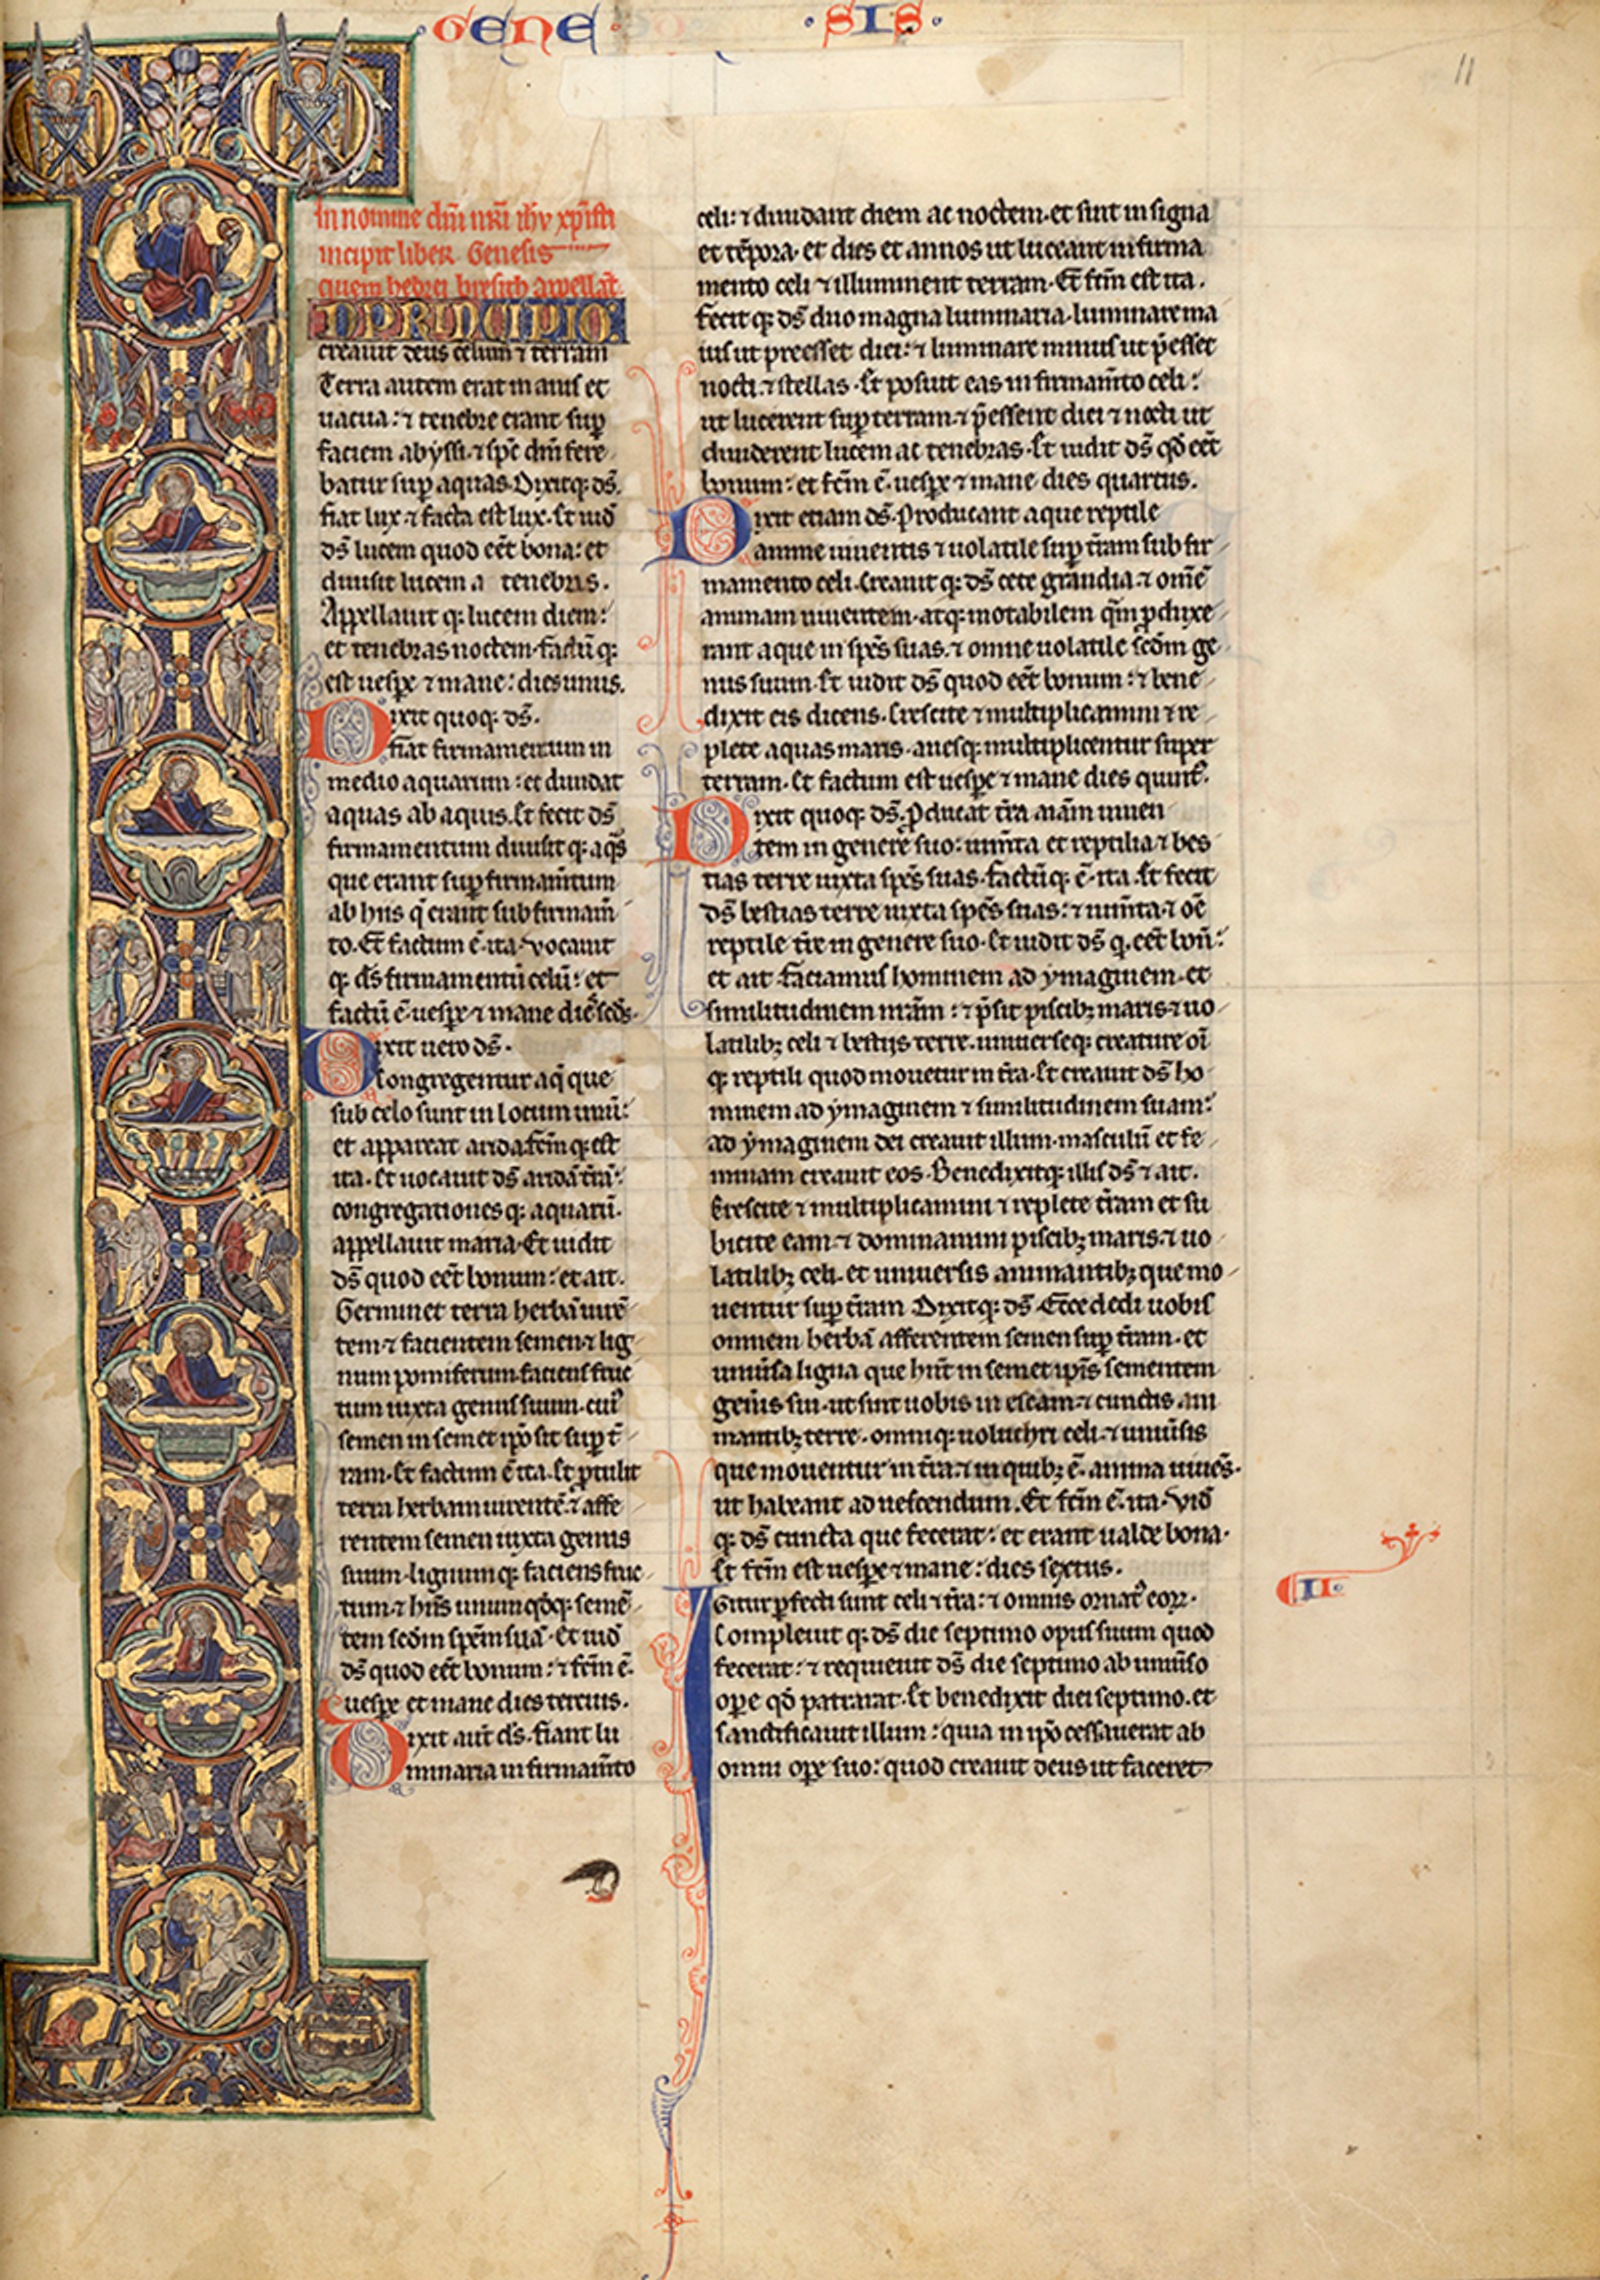 GENE SIS
11
In nomine dñi nr̃i ihv xp̃isti
incipit liber Genesis
quem hebrei bresith appellãt
IN PRINCIPIO:
creauit deus celum ⁊ terram
Terra autem erat inanis et
uacua: ⁊ tenebre erant sup̱
faciem abyssi. ⁊ sp̃c dñi fere
batur sup̱ aquas. Dixitq: ds̃.
fiat lux. ⁊ facta est lux. Et uid̃
ds̃ lucem quod eẽt bona: et
diuisit lucem a tenebris.
Appellauit q: lucem diem:
et tenebras noctem. factũ q:
est uesꝑe ⁊ mane: dies unus.
Dixit quoq: ds̃.
fiat firmamentum in
medio aquarum: et diuidat
aquas ab aquis. Et fecit ds̃
firmamentum diuisit q: aq̃s
que erant sup̱ firmam̃tum
ab hiis q̃ erant sub firmam̃
to. Et factum ẽ ita. vocauit
q: ds̃ firmamentũ celũ: et
factũ ẽ uesꝑe ⁊ mane diẽ sc̃ds.
Dixit uero ds̃.
Congregentur aq̃ que
sub celo sunt in locum unũ:
et appareat arida. fc̃m q: est
ita. Et uocauit ds̃ aridã t̃rã:
congregationes q: aquarũ.
appellauit maria. Et uidit
ds̃ quod eẽt bonum: et ait.
Germinet terra herbã uirẽ
tem ⁊ facientem semen ⁊ lig
num pomiferum faciens fruc
tum iuxta genus suum. cui᾽
semen in semet ip̃o sit sup̱ t̃
ram. Et factum ẽ ita. Et ꝓtulit
terra herbam uirentẽ. ⁊ affe
rentem semen iuxta genus
suum. lignum q: faciens fruc
tum. ⁊ hñs unum qd̃q: semẽ
tem scd̃m sp̃em suã. Et uid̃
ds̃ quod eẽt bonum: ⁊ fc̃m ẽ.
uesꝑe et mane dies tercius.
Dixit aut̃ ds̃. fiant lu
minaria in firmam̃to
celi: ⁊ diuidant diem ac noctem. et sint in signa
et tẽpora. et dies et annos ut luceant in firma
mento celi ⁊ illuminent terram. Et fc̃m est ita.
fecit q: ds̃ duo magna luminaria. luminare ma
ius ut preesset diei: ⁊ luminare minus ut p̃esset
nocti. ⁊ stellas. Et posuit eas in firmam̃to celi:
ut lucerent sup̱ terram. ⁊ p̃essent diei ⁊ nocti ut
diuiderent lucem ac tenebras. Et uidit ds̃ qd̃ eẽt
bonum: et fc̃m ẽ. uesꝑe ⁊ mane dies quartus.
Dixit etiam ds̃. Producant aque reptile
anime uiuentis ⁊ uolatile sup̱ t̃ram sub fir
mamento celi. Creauit q: ds̃ cete grandia. ⁊ om̃e
animam uiuentem. atq: motabilem qm̃ ꝓduxe
rant aque in sp̃es suas. ⁊ omne uolatile scd̃m ge
nus suum. Et uidit ds̃ quod eẽt bonum: ⁊ bene
dixit eis dicens. Crescite ⁊ multiplicamini ⁊ re
plete aquas maris. auesq: multiplicentur super
terram. Et factum est uesꝑe ⁊ mane dies quint᾽.
Dixit quoq: ds̃. ꝓducat t̃ra aĩam uiuen
tem in genere suo: ium̃ta et reptilia ⁊ bes
tias terre iuxta sp̃es suas. factũ q: ẽ ita. Et fecit
ds̃ bestias terre iuxta sp̃es suas: ⁊ ium̃ta. ⁊ oẽ
reptile t̃re in genere suo. Et uidit ds̃ q. eẽt bonũ:
et ait. faciamus hominem ad ymaginem. et
similitudinem nr̃am: ⁊ p̃sit piscib; maris ⁊ uo
latilib; celi ⁊ bestijs terre. uniuerseq: creature oĩ
q: reptili quod mouetur in t̃ra. Et creauit ds̃ ho
minem ad ymaginem ⁊ similitudinem suam:
ad ymaginem dei creauit illum. masculũ et fe
minam creauit eos. Benedixitq: illis ds̃ ⁊ ait.
Crescite ⁊ multiplicamini ⁊ replete t̃ram et su
bicite eam. ⁊ dominamini piscib; maris. ⁊ uo
latilib; celi. et uniuersis animantib; que mo
uentur sup̱ t̃ram. Dixitq: ds̃. Ecce dedi uobis
omnem herbã afferentem semen sup̱ t̃ram. et
uniũsa ligna que hñt in semet ip̃is sementem
gen̾is sui. ut sint uobis in escam. ⁊ cunctis ani
mantib; terre. omniq: uoluchri celi. ⁊ uniũsis
que mouentur in t̃ra. ⁊ in quib; ẽ. anima uiuẽs.
ut habeant ad uescendum. Et fc̃m ẽ. ita. Vid̃
q: ds̃ cuncta que fecerat: et erant ualde bona.
Et fc̃m est uesꝑe ⁊ mane: dies sextus.
II.
Igitur ꝑfecti sunt celi ⁊ t̃ra: ⁊ omnis ornat᾽ eoꝝ.
Compleuit q: ds̃ die septimo opus suum quod
fecerat: ⁊ requieuit ds̃ die septimo ab uniũso
opere qd̃ patrarat. Et benedixit diei septimo. et
sanctificauit illum: quia in ip̃o cessauerat ab
omni oꝑe suo: quod creauit deus ut faceret